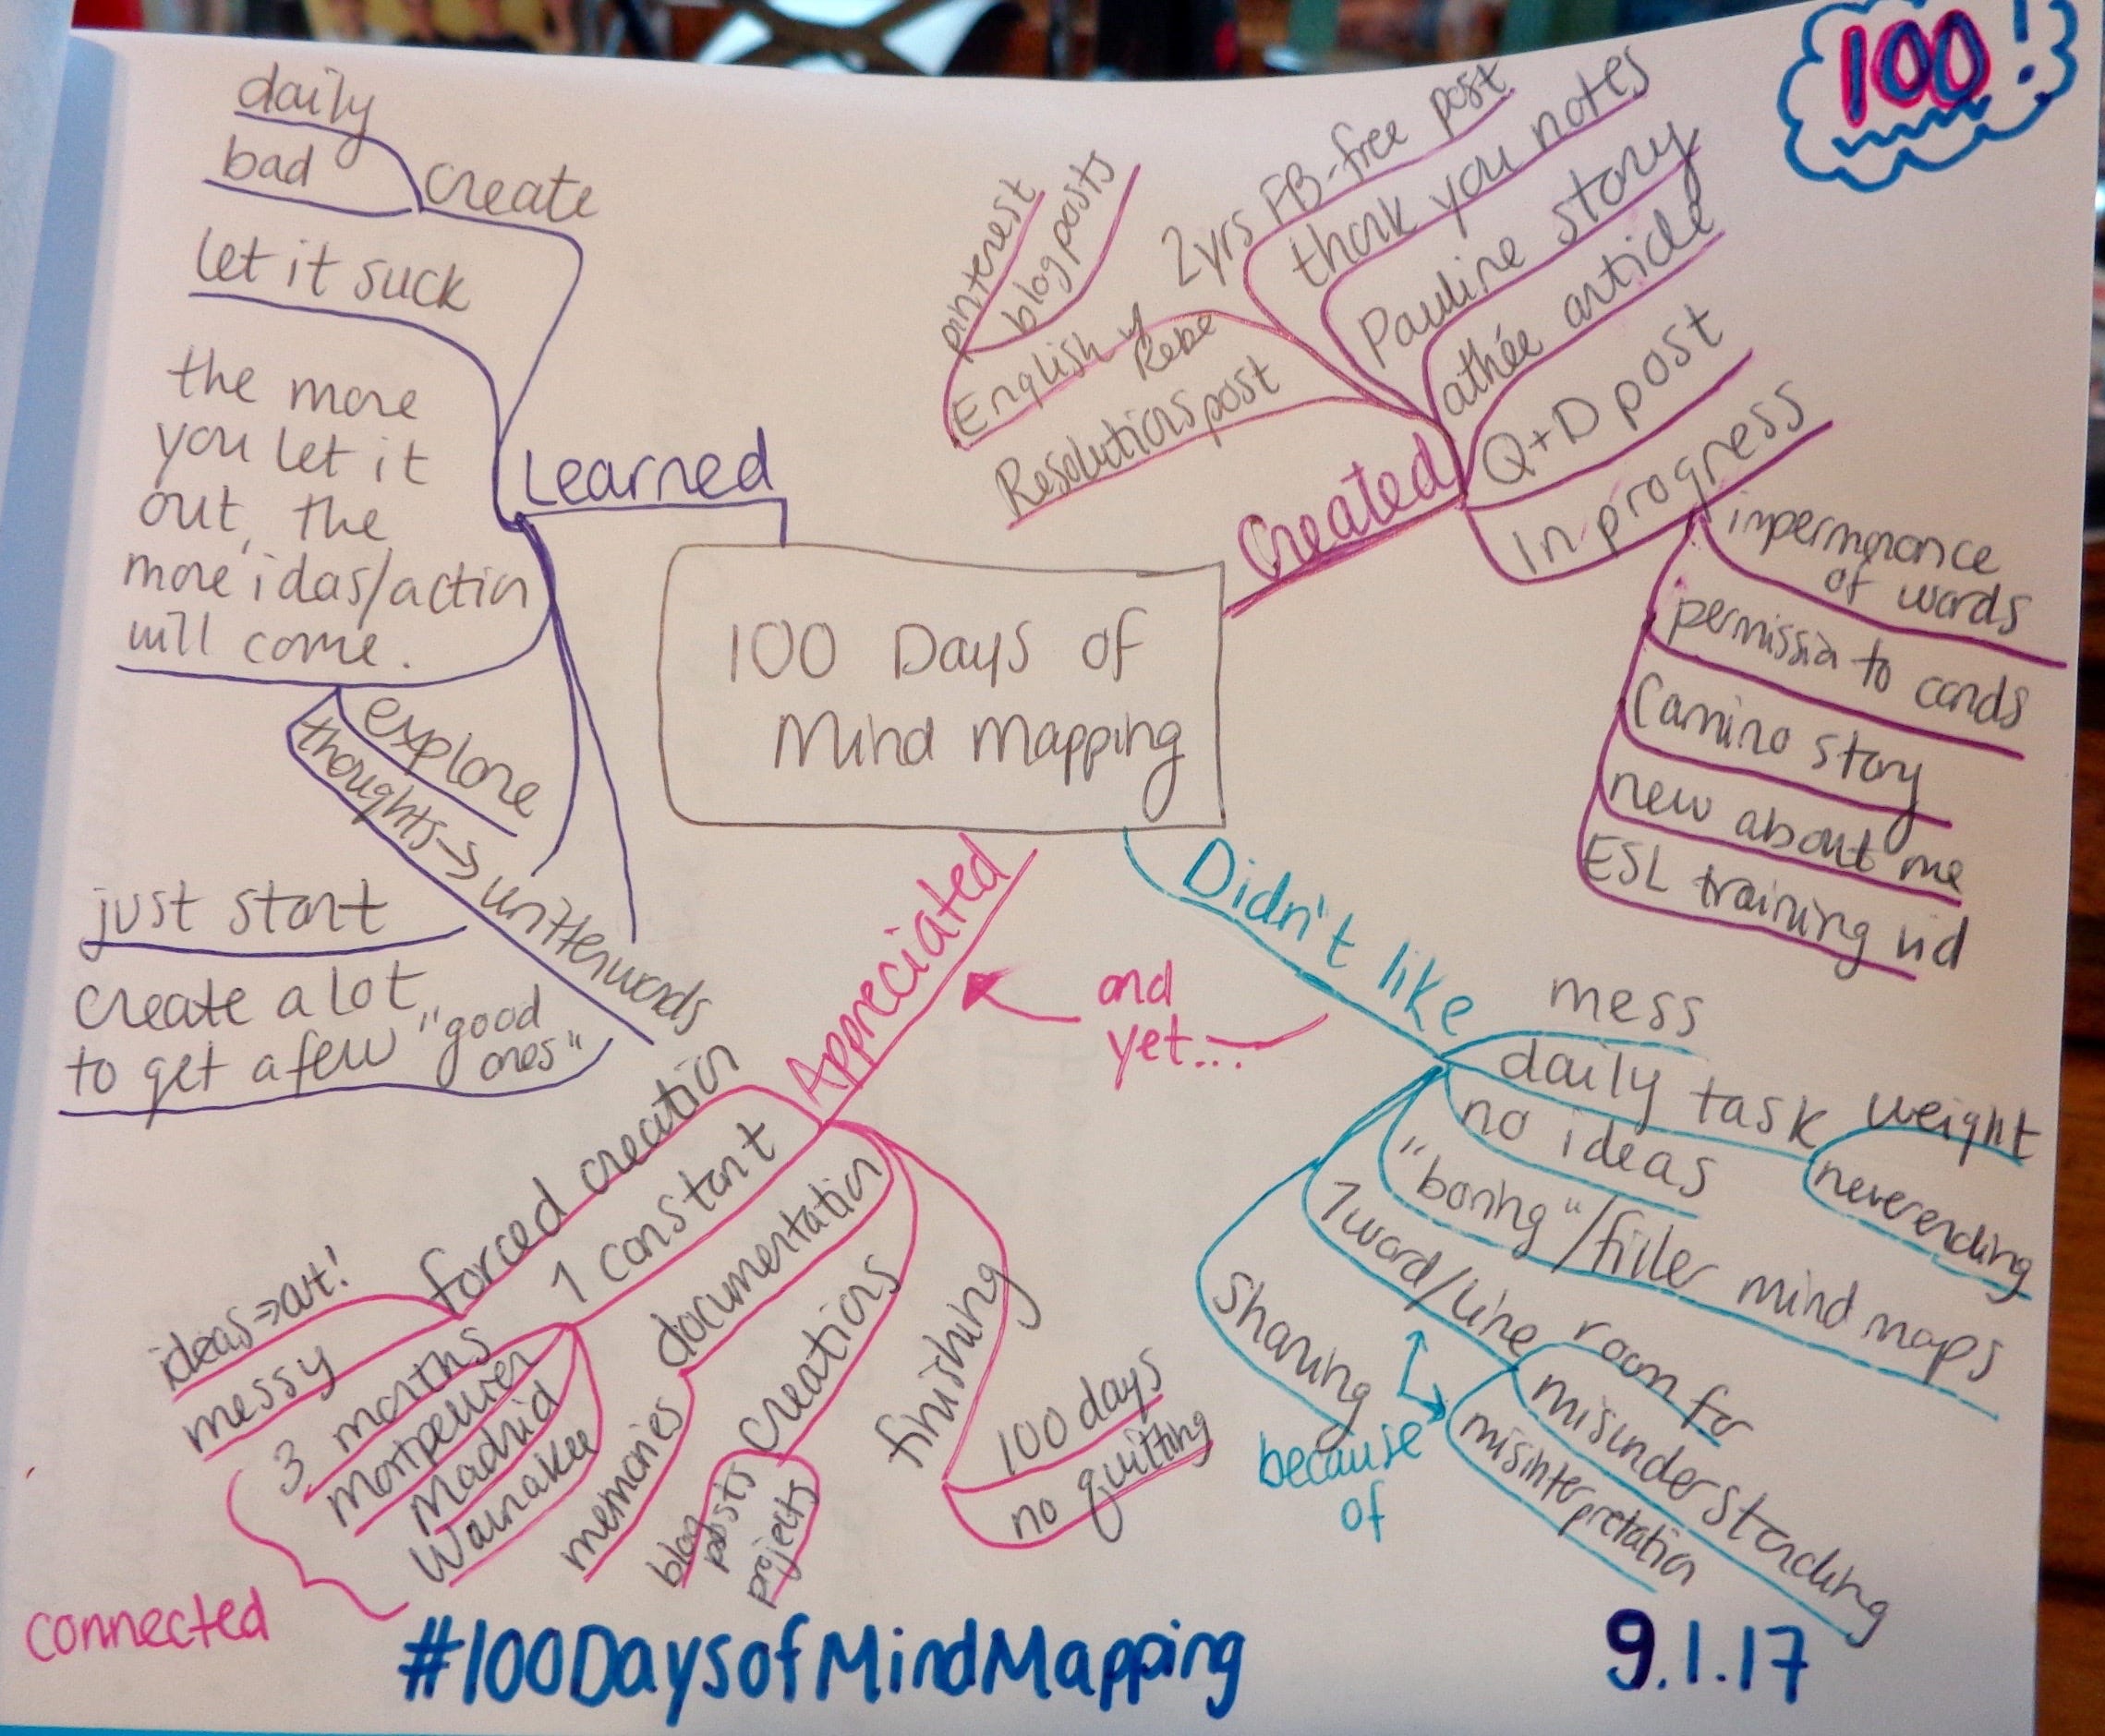 100!
100 Days of
Mind Mapping
Learned
create
daily
bad
let it suck
the more
you let it
out, the
more idas/action
will come.
explore
thoughts → written words
just start
create a lot
to get a few "good
ones"
Created
Resolutions post
English y
Rebe
pinterest
blog posts
2yrs FB-free post
thank you notes
Pauline story
athée article
Q+D post
In progress
impermanence
of words
permission to cards
Camino story
new about me
ESL training vid
Didn't like
mess
daily task
weight
neverending
no ideas
"boring"/filler mind maps
1 word/line
room for
misunderstanding
misinterpretation
sharing
because
of
and
yet...
Appreciated
forced creation
ideas→out!
messy
1 constant
3 months
Montpellier
Madrid
Waunakee
connected
documentation
memories
creations
blog
posts
projects
finishing
100 days
no quitting
#100DaysofMindMapping
9.1.17